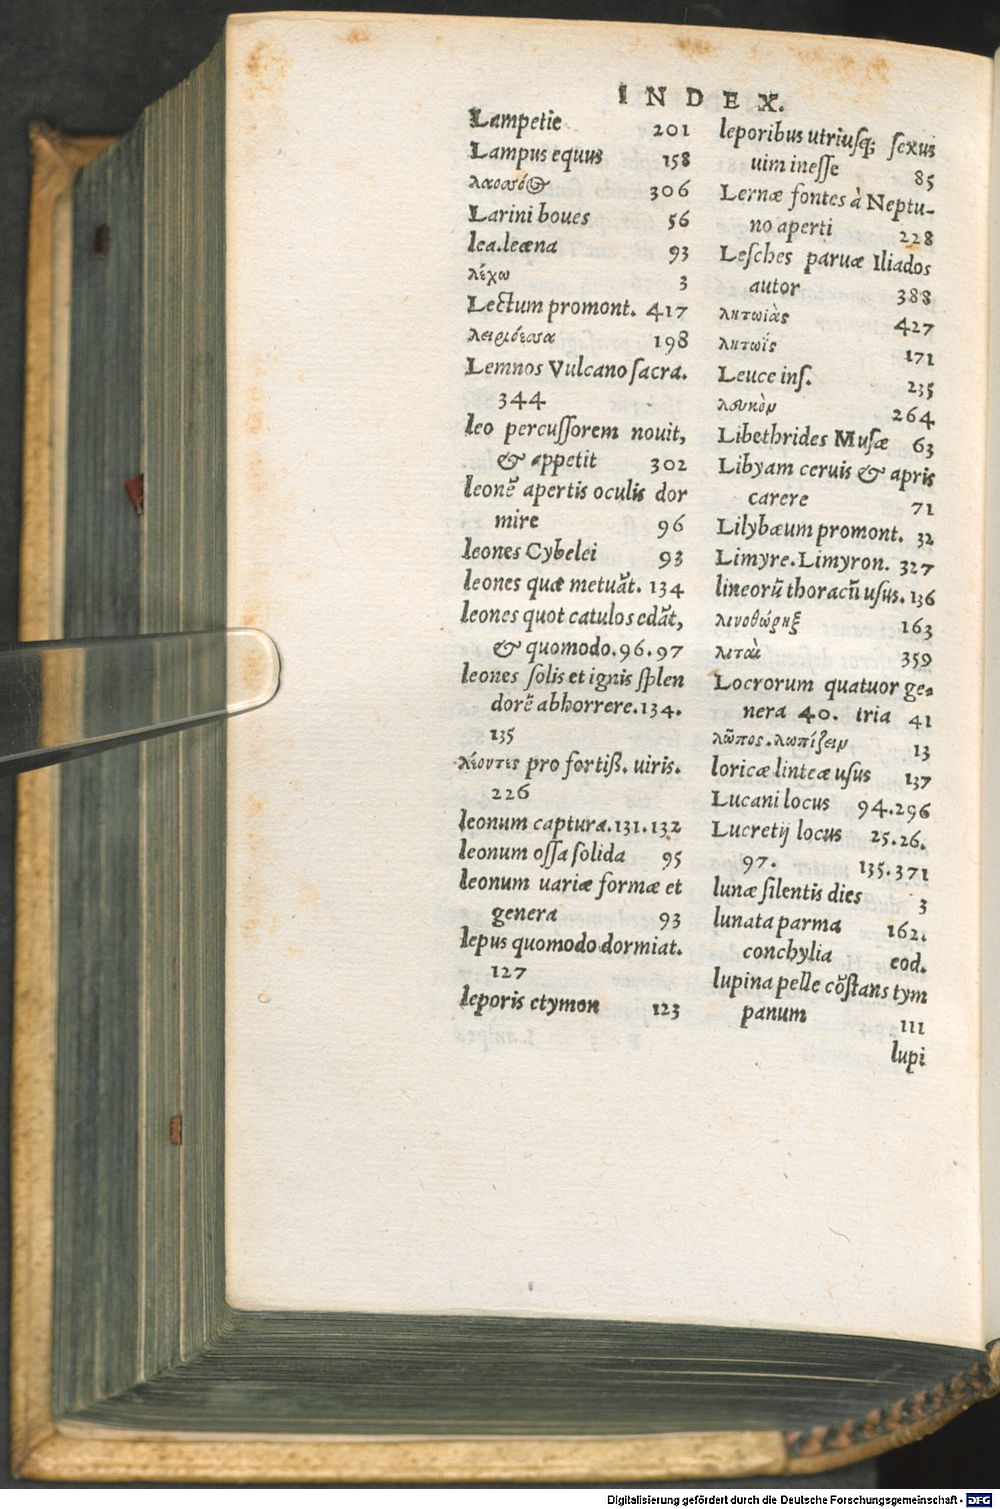 INDEX.
Lampetie 201
Lampus equus 158
306
Larini boues 56
lea.leæna 93
λέχω 3
Lectum promont. 417
λειριόεσσα 198
Lemnos Vulcano sacra.
344
leo percussorem nouit,
& appetit 302
leonẽ apertis oculis dor
mire 96
leones Cybelei 93
leones quæ metuãt. 134
leones quot catulos edãt,
& quomodo.96.97
leones solis et ignis splen
dorẽ abhorrere.134.
135
λέοντες pro fortiß. uiris.
226
leonum captura.131.132
leonum ossa solida 95
leonum uariæ formæ et
genera 93
lepus quomodo dormiat.
127
leporis etymon 123
leporibus utriusq; sexus
uim inesse 85
Lernæ fontes à Neptu-
no aperti 228
Lesches paruæ Iliados
autor 388
λητωιὰς 427
λητωῒς 171
Leuce ins. 235
λευκὸν 264
Libethrides Musæ 63
Libyam ceruis & apris
carere 71
Lilybæum promont. 32
Limyre.Limyron. 327
lineorũ thoracũ usus.136
λινοθώρηξ 163
λιταὶ 359
Locrorum quatuor ge-
nera 40. tria 41
λῶπος.λωπίζειν 13
loricæ linteæ usus 137
Lucani locus 94.296
Lucretij locus 25.26.
97. 135.371
lunæ silentis dies 3
lunata parma 162.
conchylia eod.
lupina pelle cõstans tym
panum 111
lupi
Digitalisierung gefördert durch die Deutsche Forschungsgemeinschaft - DFG